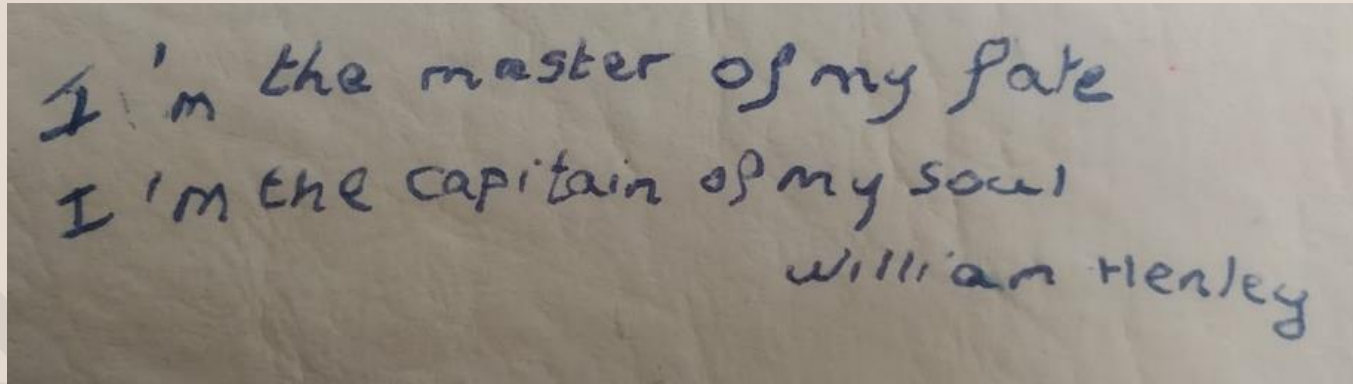 I'm the master of my fate
I'm the capitain of my soul
William Henley